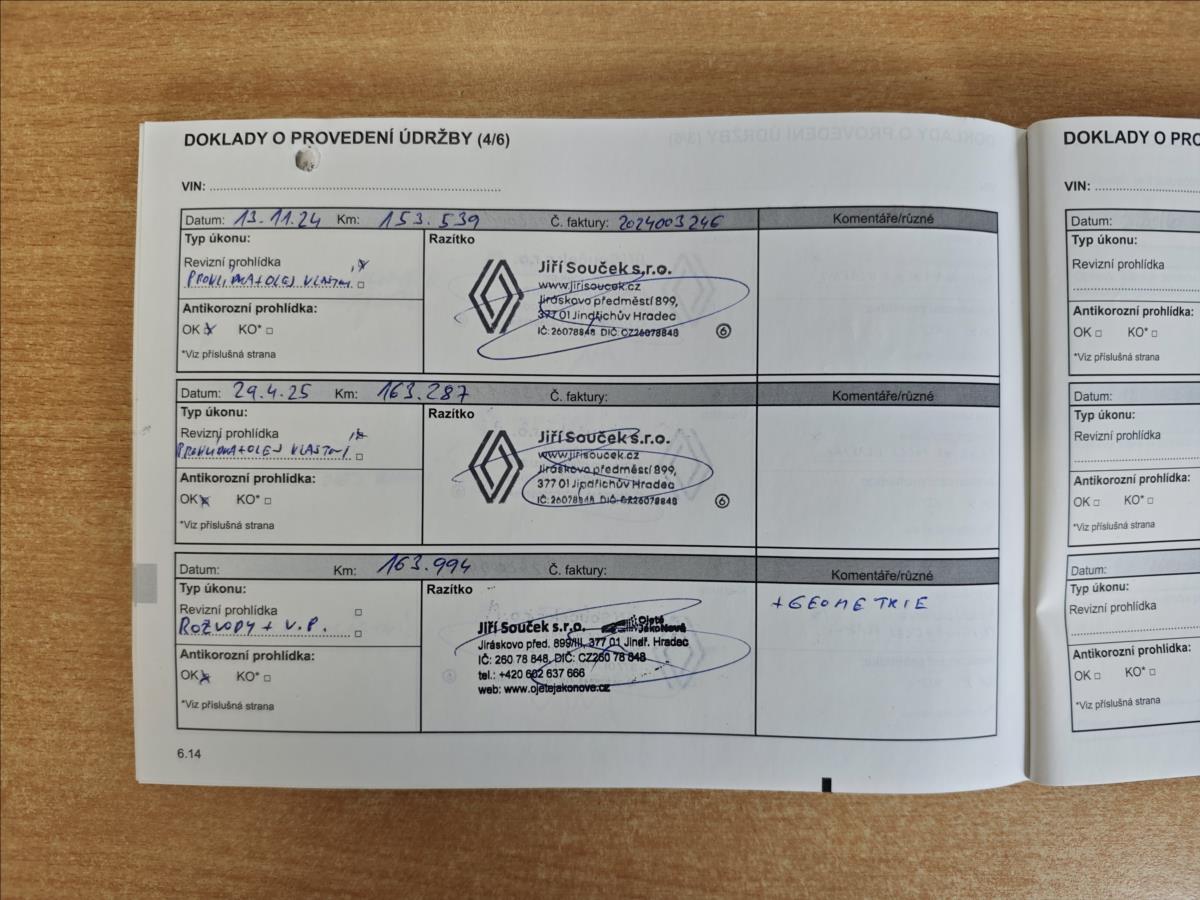 DOKLADY O PROVEDENÍ ÚDRŽBY (4/6)
VIN:
Datum: 13.11.24 Km: 153.539 Č. faktury: 2024003246 Komentáře/různé
Typ úkonu:
Revizní prohlídka
OLEJ VLASTNÍ
Antikorozní prohlídka:
OK KO*
*Viz příslušná strana
Razítko
Jiří Souček s.r.o.
www.jirisoucek.cz
Jiráskovo předměstí 899,
377 01 Jindřichův Hradec
IČ: 26078848 DIČ: CZ26078848
6
Datum: 29.4.25 Km: 163.287 Č. faktury: Komentáře/různé
Typ úkonu:
Revizní prohlídka
OLEJ VLASTNÍ
Antikorozní prohlídka:
OK KO*
*Viz příslušná strana
Razítko
Jiří Souček s.r.o.
www.jirisoucek.cz
Jiráskovo předměstí 899,
377 01 Jindřichův Hradec
IČ: 26078848 DIČ: CZ26078848
6
Datum: Km: 163.994 Č. faktury: Komentáře/různé
Typ úkonu:
Revizní prohlídka
ROZVODY + V.P.
Antikorozní prohlídka:
OK KO*
*Viz příslušná strana
Razítko
Jiří Souček s.r.o. Ojeté JakoNové
Jiráskovo před. 899/III, 377 01 Jindř. Hradec
IČ: 260 78 848, DIČ: CZ260 78 848
tel.: +420 602 637 666
web: www.ojetejakonove.cz
+ GEOMETRIE
6.14
DOKLADY O PRO
VIN:
Datum:
Typ úkonu:
Revizní prohlídka
Antikorozní prohlídka:
OK KO*
*Viz příslušná strana
Datum:
Typ úkonu:
Revizní prohlídka
Antikorozní prohlídka:
OK KO*
*Viz příslušná strana
Datum:
Typ úkonu:
Revizní prohlídka
Antikorozní prohlídka:
OK KO*
*Viz příslušná strana